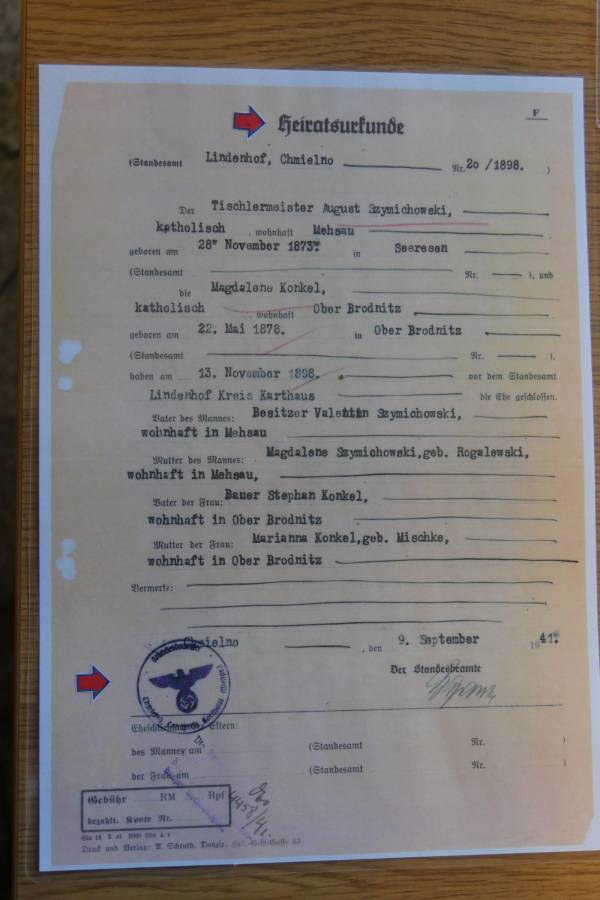 F
Heiratsurkunde
(Standesamt Lindenhof, Chmielno Nr. 20/1898. )
Der Tischlermeister August Szymichowski,
katholisch, wohnhaft Mehsau
geboren am 28. November 1873. in Seeresen
(Standesamt Nr. ), und
die Magdalene Konkel,
katholisch wohnhaft Ober Brodnitz
geboren am 22. Mai 1878. in Ober Brodnitz
(Standesamt Nr. ).
haben am 13. November 1898. vor dem Standesamt
Lindenhof Kreis Karthaus die Ehe geschlossen.
Vater des Mannes: Besitzer Valentin Szymichowski,
wohnhaft in Mehsau
Mutter des Mannes: Magdalene Szymichowski, geb. Rogalewski,
wohnhaft in Mehsau,
Vater der Frau: Bauer Stephan Konkel,
wohnhaft in Ober Brodnitz
Mutter der Frau: Marianna Konkel, geb. Mischke,
wohnhaft in Ober Brodnitz
Vermerke:
Chmielno, den 9. September 1941.
Der Standesbeamte
Eltern:
des Mannes am (Standesamt Nr. )
der Frau am (Standesamt Nr. )
Gebühr RM Rpf
bezahlt. Konto Nr.
4458/41
Druck und Verlag: A. Schroth, Danzig,